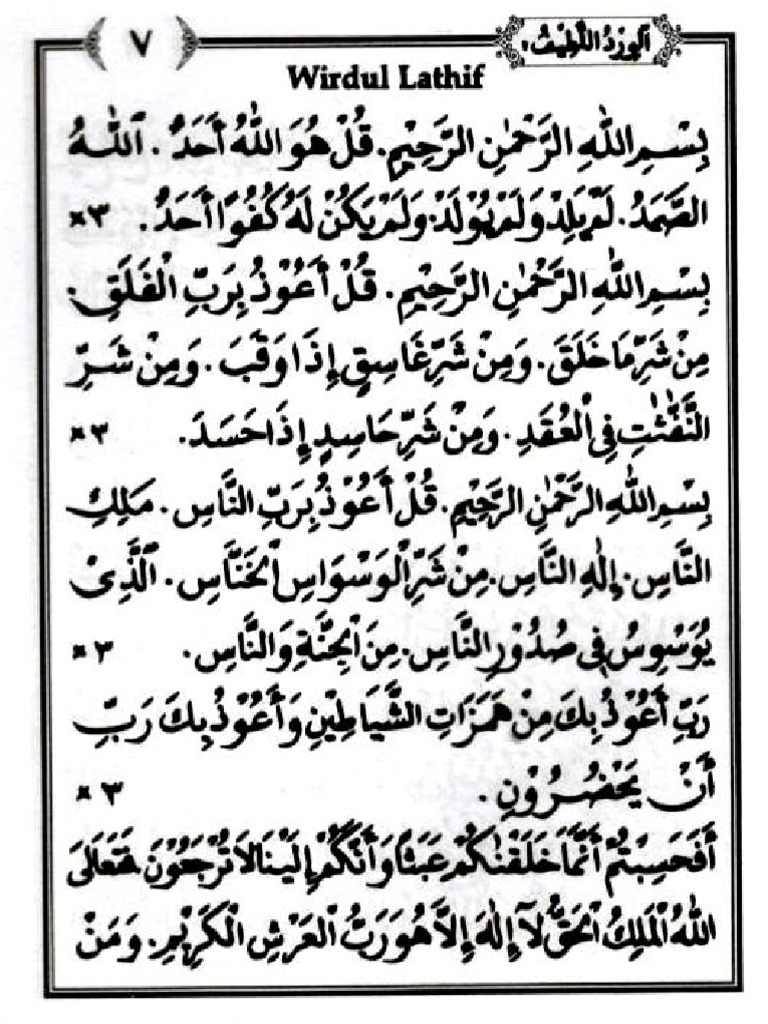 ٧
اَلْوِرْدُ اللَّطِيْفُ
Wirdul Lathif
بِسْـمِ اللّٰهِ الرَّحْمٰنِ الرَّحِيْمِ. قُلْ هُوَ اللّٰهُ أَحَدٌ. اَللّٰـهُ
الصَّمَدُ. لَمْ يَلِدْ وَلَمْ يُوْلَدْ. وَلَمْ يَكُنْ لَهُ كُفُوًا أَحَدٌ. ×٣
بِسْـمِ اللّٰهِ الرَّحْمٰنِ الرَّحِيْمِ. قُلْ أَعُوْذُ بِرَبِّ الْفَلَقِ.
مِنْ شَرِّ مَا خَلَقَ. وَمِنْ شَرِّ غَاسِقٍ إِذَا وَقَبَ. وَمِنْ شَـرِّ
النَّفّٰثٰتِ فِى الْعُقَدِ. وَمِنْ شَرِّ حَاسِدٍ إِذَا حَسَدَ. ×٣
بِسْـمِ اللّٰهِ الرَّحْمٰنِ الرَّحِيْمِ. قُلْ أَعُوْذُ بِرَبِّ النَّاسِ. مَلِكِ
النَّاسِ. إِلٰهِ النَّاسِ. مِنْ شَرِّ الْوَسْوَاسِ الْخَنَّاسِ. اَلَّذِىْ
يُوَسْوِسُ فِى صُدُوْرِ النَّاسِ. مِنَ الْجِنَّةِ وَالنَّاسِ. ×٣
رَبِّ أَعُوْذُ بِكَ مِنْ هَمَزَاتِ الشَّيَاطِيْنِ وَأَعُوْذُ بِكَ رَبِّ
أَنْ يَحْضُـرُوْنِ. ×٣
أَفَحَسِبْتُمْ أَنَّمَا خَلَقْنٰكُمْ عَبَثًا وَأَنَّكُمْ إِلَيْنَا لَا تُرْجَعُوْنَ فَتَعَالَى
اللّٰهُ الْمَلِكُ الْحَقُّ لَآ إِلٰهَ إِلَّا هُوَ رَبُّ الْعَرْشِ الْكَرِيْمِ. وَمَنْ